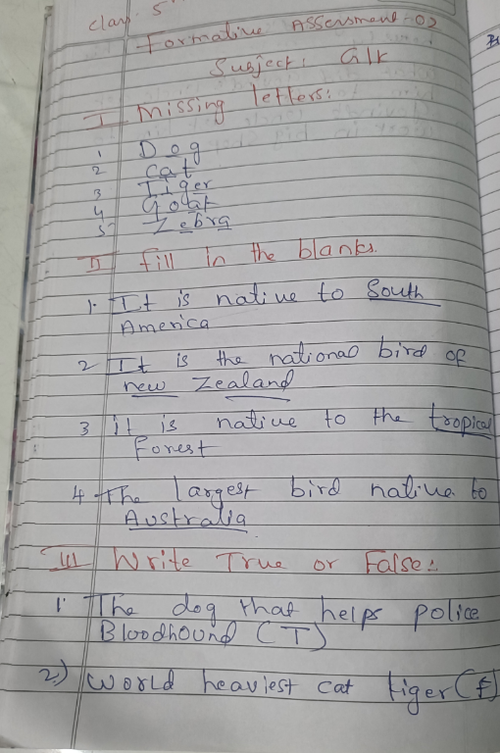 Class 5
Formative Assessment-02
Subject: GK
I Missing letters:
1 Dog
2 cat
3 Tiger
4 Goat
5 Zebra
II fill in the blanks.
1. It is native to South
America
2 It is the national bird of
new Zealand
3 it is native to the tropical
Forest
4 The largest bird native to
Australia
III Write True or False:
1. The dog that helps police
Bloodhound (T)
2.) World heaviest cat tiger (F)